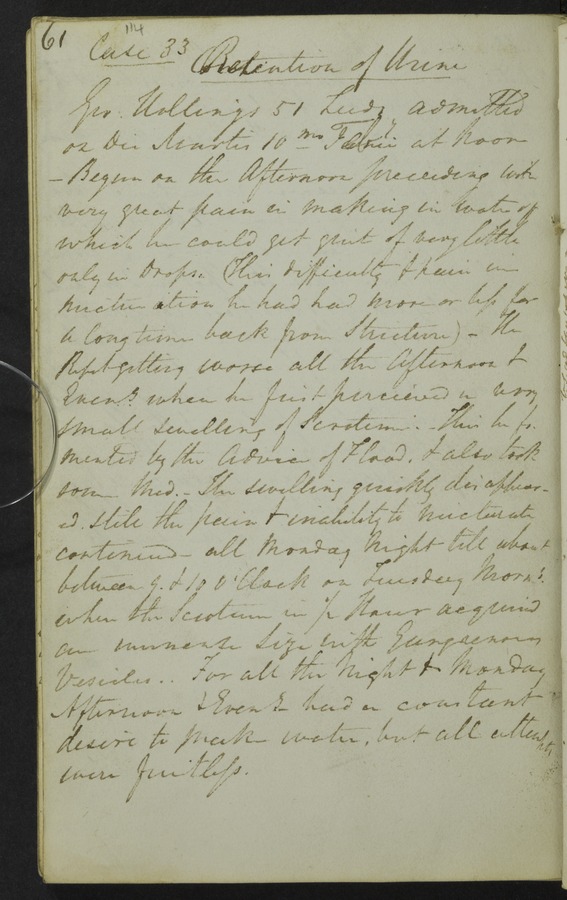 61
114
Case 33 Retention of Urine
Geo. Hollings 51 Leeds admitted
on Die Martis 10 mo at Noon
- Began on the Afternoon preceeding with
very great pain in making in water of
which he could get quit of very little
only in Drops. (This difficulty & pain in
micturation he had had more or less for
a long time back from Stricture) - The
Pat getting worse all the Afternoon &
Eveng. when he first perceived a very
small swelling of Scrotum. - This he fo-
mented by the Advice of Flood. & also took
some Med. - The swelling quickly disappear-
ed. still the pain & inability to micturate
continued - all Monday Night till about
between 9. & 10 O'Clock on Tuesday Morng.
when the Scrotum in ½ Hour acquired
an immense size with Gangrenous
Vesicles.. For all the Night & Monday
Afternoon & Eveng had a constant
desire to make water, but all attempts
were fruitless.